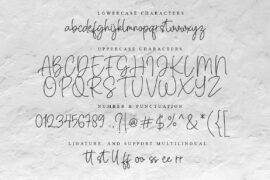 LOWERCASE CHARACTERS
abcdefghijklmnopqrstuvwxyz
UPPERCASE CHARACTERS
ABCDEFGHIJKLMN
OPQRSTUVWXYZ
NUMBER & PUNCTUATION
0123456789..,?!@#$%^&*({[
LIGATURE, AND SUPPORT MULTILINGUAL
tt st ll ff oo ss ee rr